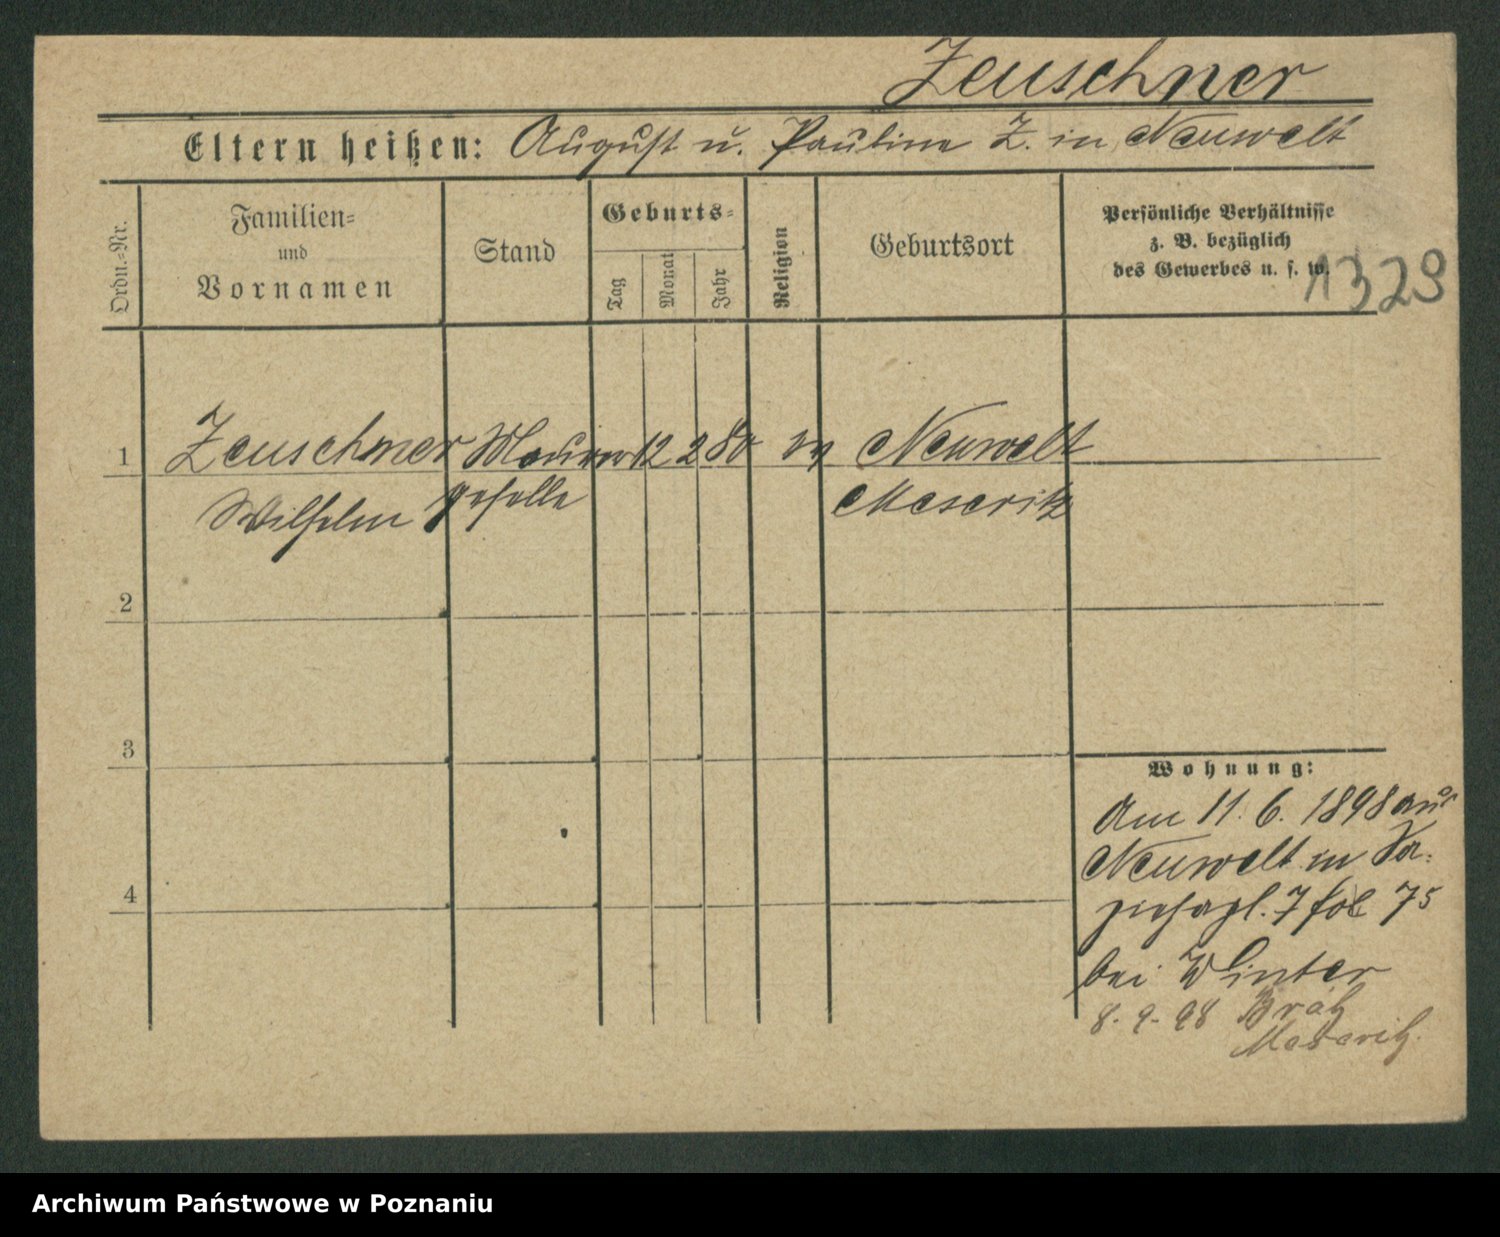 Zeuschner
Eltern heißen: August u. Pauline Z. in Neuwelt
Ordn.-Nr.
Familien-
und
Vornamen
Stand
Geburts-
Tag
Monat
Jahr
Religion
Geburtsort
Persönliche Verhältnisse
z. B. bezüglich
des Gewerbes u. s. w.
1329
1 Zeuschner Maurer 12 2 80 ev Neuwelt
Wilhelm geselle Meseritz
2
3
4
Wohnung:
Am 11. 6. 1898 aus
Neuwelt in
7 fol 75
bei Winter
8. 9. 98 Brätz
Meseritz.
Archiwum Państwowe w Poznaniu